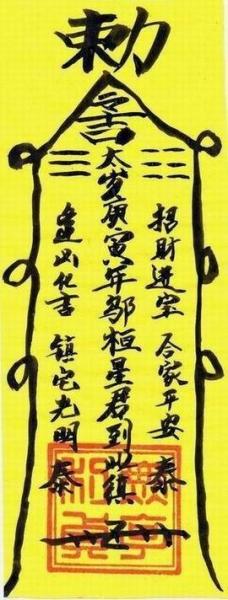 勅
招財進宝 合家平安 泰
太岁庚寅年邬桓星君到此镇
逢凶化吉 镇宅光明 泰